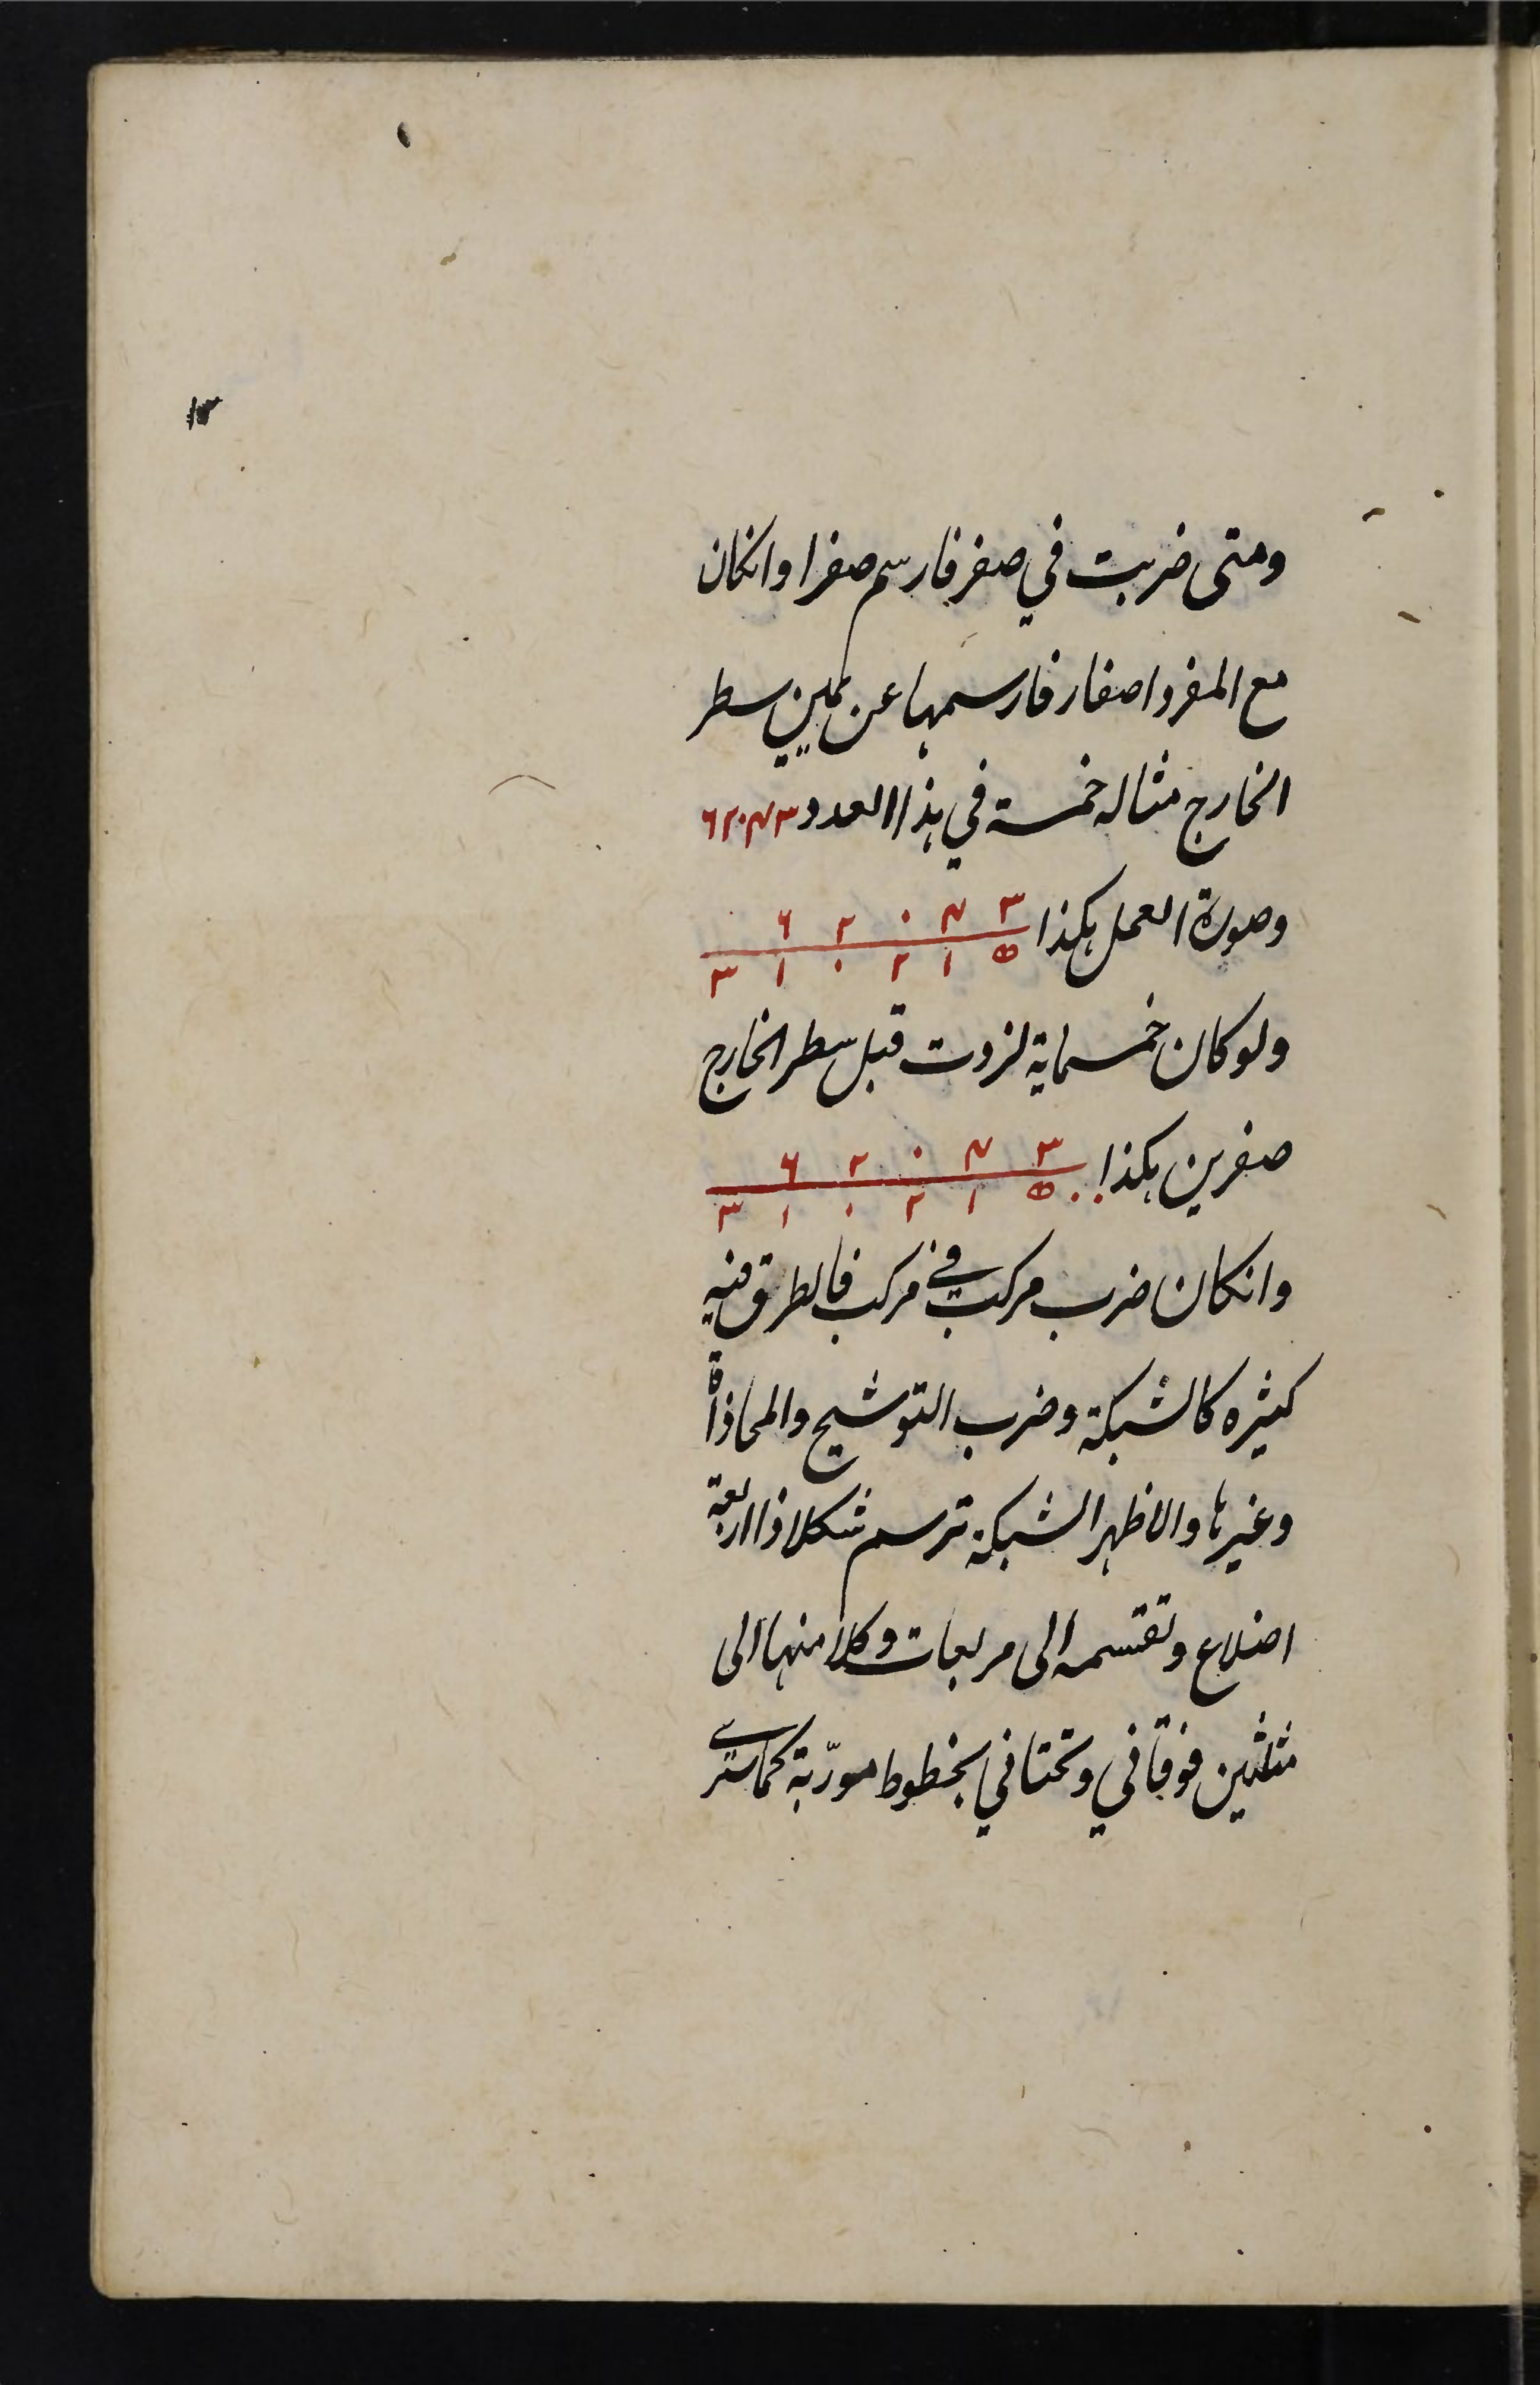 ١٢
ومتى ضربت في صفر فارسم صفرا وانكان
مع المفرد اصفار فارسمها عن يمين سطر
الخارج مثاله خمسة في هذا العدد ٦٢٠٤٣
وصورة العمل هكذا ٦ ٢ ٠ ٤ ٣
٣ ١ ٠ ٢ ١ ٥
ولو كان خمسماية لزدت قبل سطر الخارج
صفرين هكذا ٦ ٢ ٠ ٤ ٣
٣ ١ ٠ ٢ ١ ٥ ٠ ٠
وانكان ضرب مركب في مركب فالطرق فيه
كثيره كالشبكة وضرب التوشيح والمحاذاة
وغيرها والاظهر الشبكة ترسم شكلا ذا اربعة
اضلاع وتقسمه الى مربعات وكلا منها الى
مثلثين فوقاني وتحتاني بخطوط مورّبة كما سترى